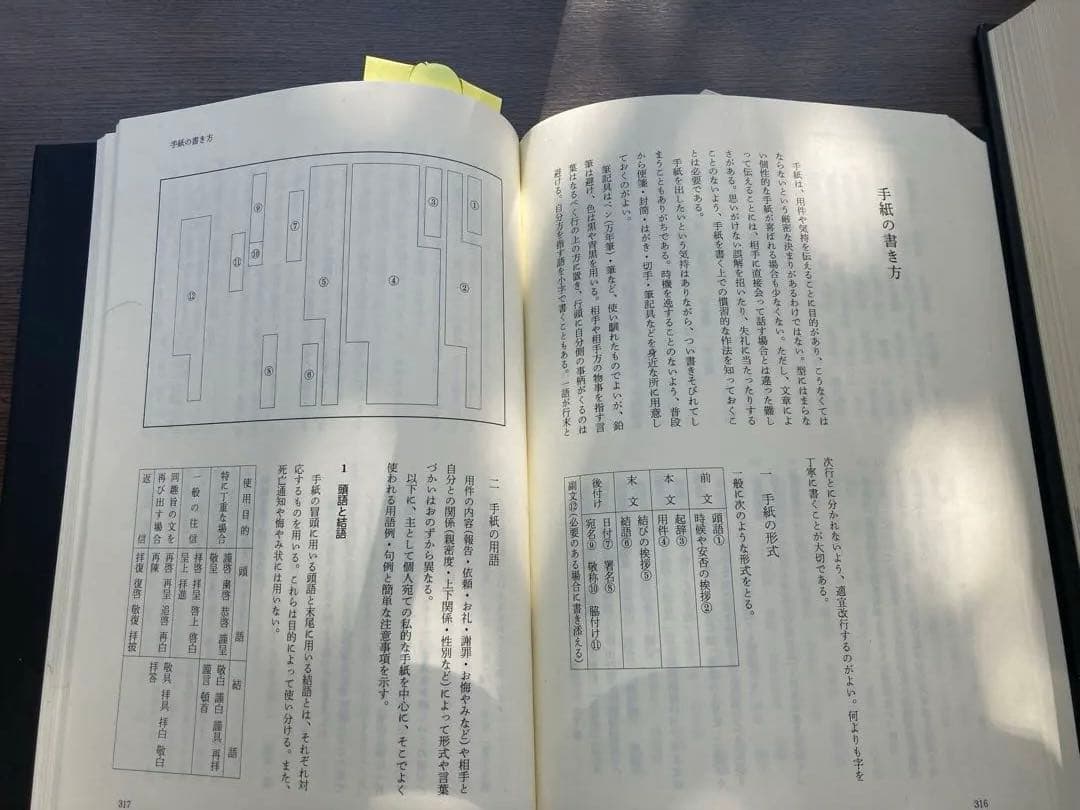 手紙の書き方
手紙は、用件や気持を伝えることに目的があり、こうなくては
ならないという厳密な決まりがあるわけではない。型にはまらな
い個性的な手紙が喜ばれる場合も少なくない。ただし、文章によ
って伝えることには、相手に直接会って話す場合とは違った難し
さがある。思いがけない誤解を招いたり、失礼に当たったりする
ことのないよう、手紙を書く上での慣習的な作法を知っておくこ
とは必要である。
手紙を出したいという気持はありながら、つい書きそびれてし
まうこともありがちである。時機を逸することのないよう、普段
から便箋・封筒・はがき・切手・筆記具などを身近な所に用意し
ておくのがよい。
筆記具はペン(万年筆)・筆など、使い馴れたものでよいが、鉛
筆は避け、色は黒や青黒を用いる。相手や相手方の物事を指す言
葉はなるべく行の上の方に置き、行頭に自分側の事柄がくるのは
避ける。自分方を指す語を小字で書くこともある。一語が行末と
次行とに分かれないよう、適宜改行するのがよい。何よりも字を
丁寧に書くことが大切である。
一 手紙の形式
一般に次のような形式をとる。
前文 頭語① 時候や安否の挨拶②
本文 起辞③ 用件④
末文 結びの挨拶⑤ 結語⑥
後付け 日付⑦ 署名⑧ 宛名⑨ 敬称⑩ 脇付け⑪
副文⑫(必要のある場合に書き添える)
316
手紙の書き方
①
②
③
④
⑤
⑥
⑦
⑧
⑨
⑩
⑪
⑫
二 手紙の用語
用件の内容(報告・依頼・お礼・謝罪・お悔やみなど)や相手と
自分との関係(親密度・上下関係・性別など)によって形式や言葉
づかいはおのずから異なる。
以下に、主として個人宛ての私的な手紙を中心に、そこでよく
使われる用語例・句例と簡単な注意事項を示す。
1 頭語と結語
手紙の冒頭に用いる頭語と末尾に用いる結語とは、それぞれ対
応するものを用いる。これらは目的によって使い分ける。また、
死亡通知や悔やみ状には用いない。
使用目的 頭語 結語
特に丁重な場合 謹啓 粛啓 恭啓 謹呈 敬呈 敬白 謹白 謹具 再拝
一般の往信 拝啓 拝呈 啓上 啓白 呈上 拝進 謹言 頓首
同趣旨の文を再び出す場合 再啓 再呈 追啓 再白 再陳 敬具 拝具 拝白 敬白
返信 拝復 復啓 敬復 拝披 拝答
317